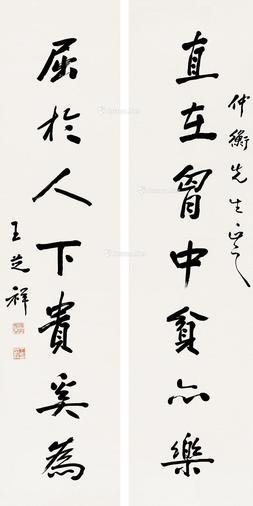 仲衡先生正之
直在胷中貧亦樂
屈於人下貴奚為
王芝祥